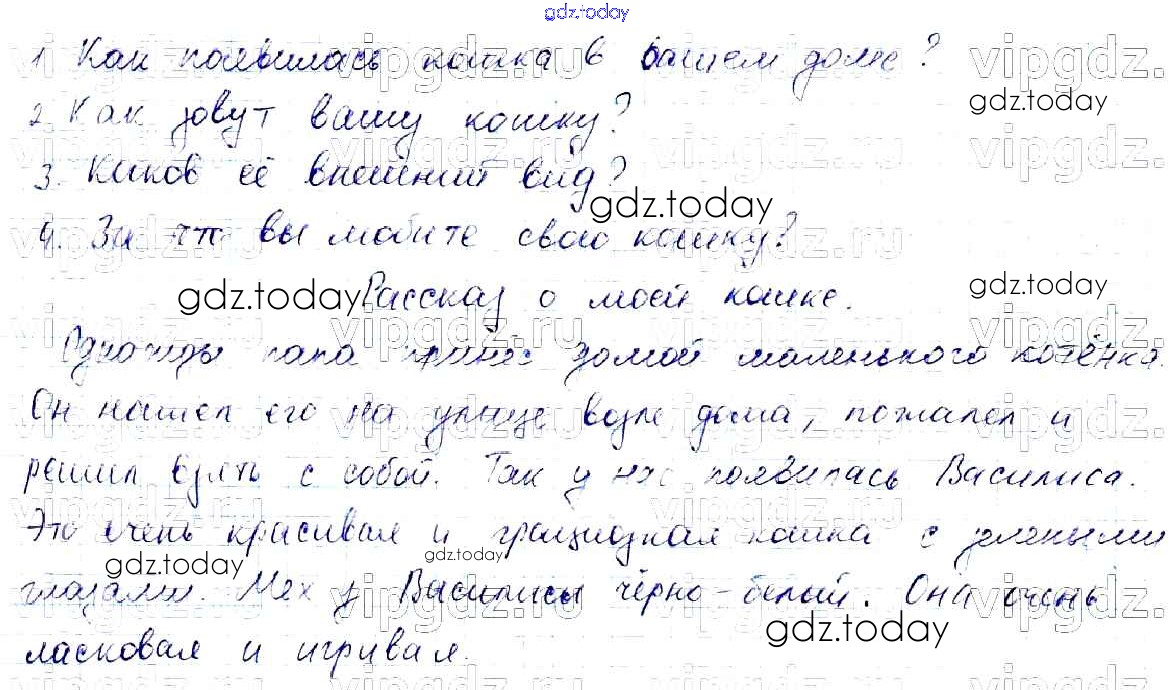 gdz.today
1. Как появилась кошка в вашем доме?
2. Как зовут вашу кошку?
3. Каков её внешний вид?
4. За что вы любите свою кошку?
Рассказ о моей кошке.
Однажды папа принёс домой маленького котёнка.
Он нашел его на улице возле дома, пожалел и
решил взять с собой. Так у нас появилась Василиса.
Это очень красивая и грациозная кошка с зелеными
глазами. Мех у Василисы чёрно-белый. Она очень
ласковая и игривая.